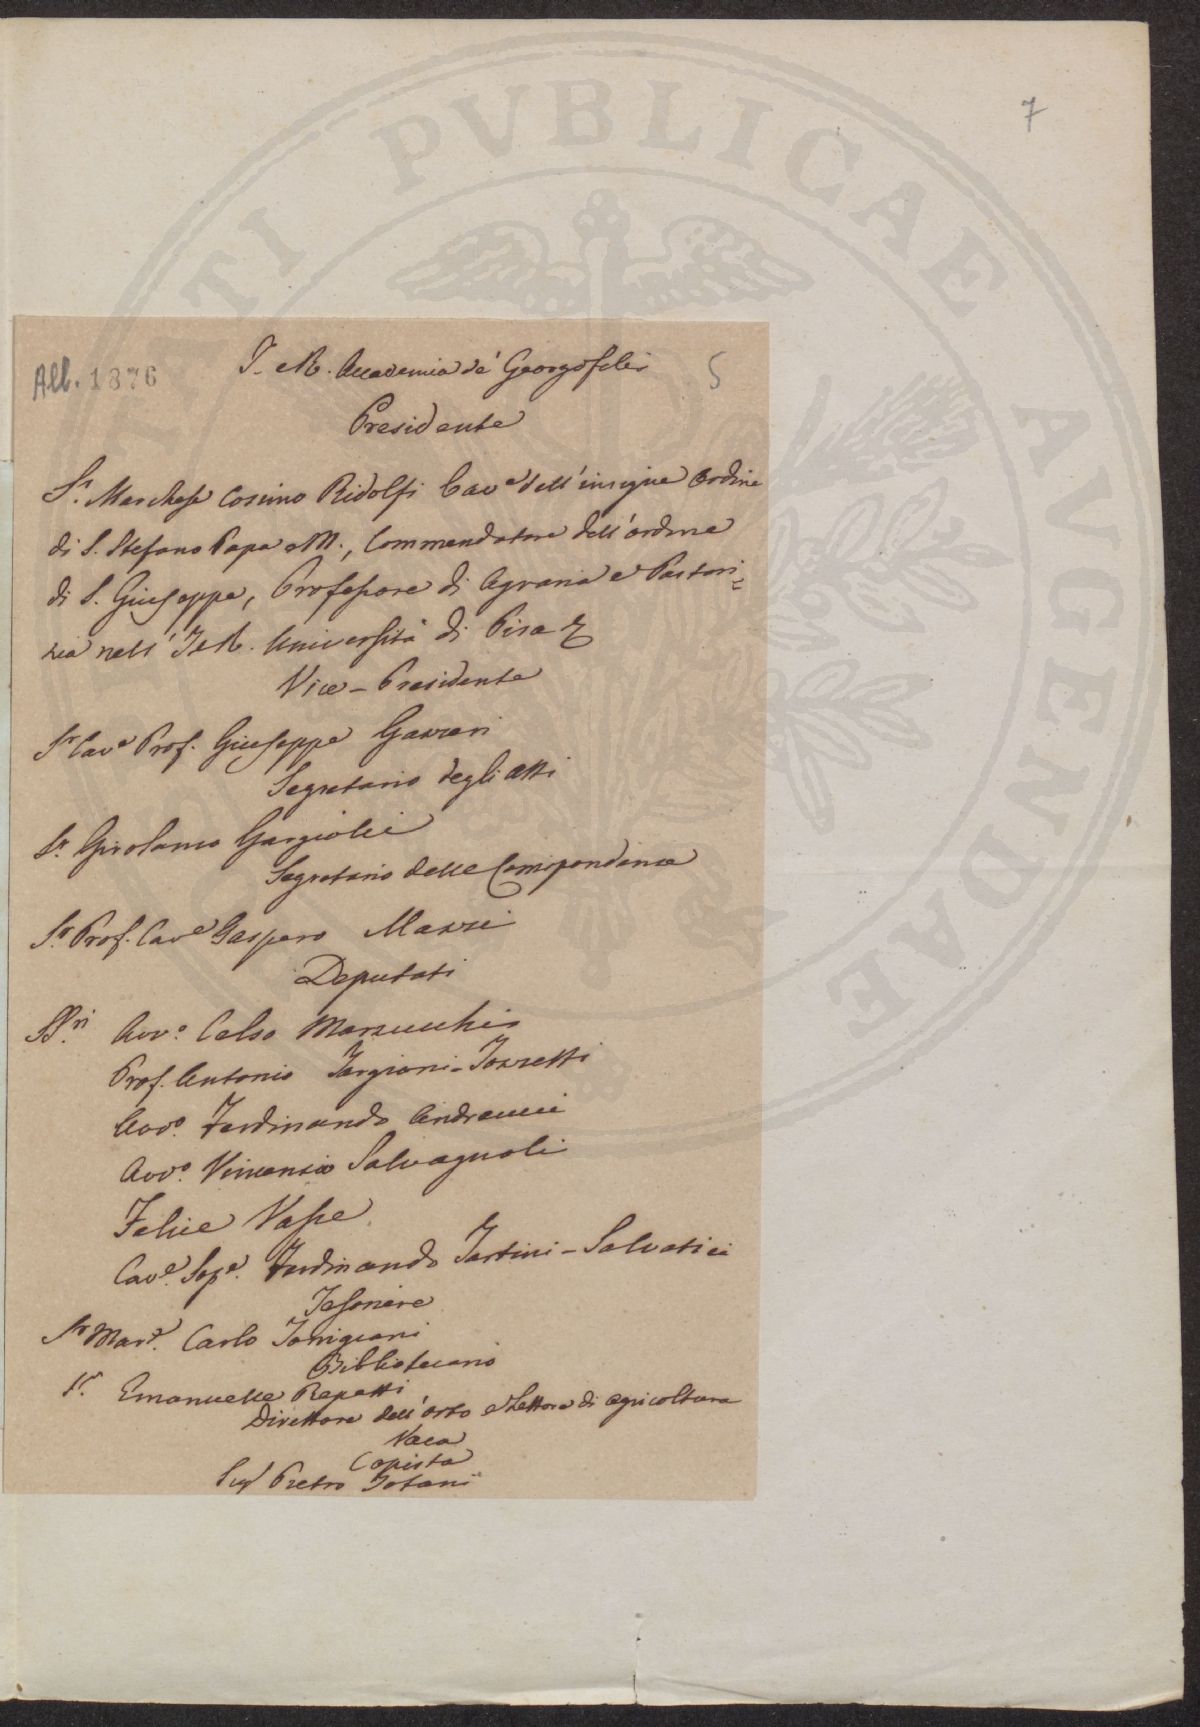 7
All. 1876
5
I. e R. Accademia de' Georgofili
Presidente
Sr. Marchese Cosimo Ridolfi Cave dell'insigne Ordine
di S. Stefano Papa e M., Commendatore dell'ordine
di S. Giuseppe, Professore di Agraria e Pastori=
zia nell'I. e R. Università di Pisa
Vice-Presidente
Sr Cave Prof. Giuseppe Gazzeri
Segretario degli Atti
Sr. Girolamo Gargiolli
Segretario delle Corrispondenze
Sr. Prof. Cave Gaspero Mazzi
Deputati
SS.ri Avvo. Celso Marzucchi
Prof. Antonio Targioni-Tozzetti
Avvo. Ferdinando Andreucci
Avvo. Vincenzio Salvagnoli
Felice Vasse
Cave. Ferdinando Tartini-Salvatici
Tesoriere
Sr Mare. Carlo Torrigiani
Bibliotecario
Sr. Emanuelle Repetti
Direttore dell'Orto e Lettore di agricoltura
Vaca
Copista
Sigr Pietro Totani
PVBLICAE AVGENDAE